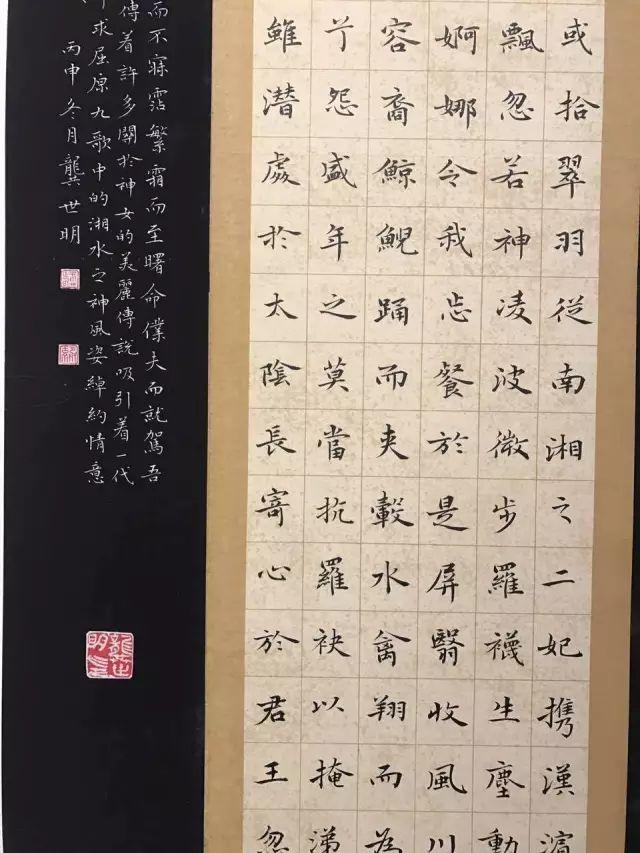 或拾翠羽從南湘之二妃携漢
飄忽若神凌波微步羅襪生塵動
婀娜令我忘餐於是屏翳收風川
容裔鯨鯢踊而夾轂水禽翔而為
兮怨盛年之莫當抗羅袂以掩涕
雖潛處於太陰長寄心於君王忽
而不寐霑繁霜而至曙命僕夫而就駕吾
傳着許多關於神女的美麗傳說吸引着一代
求屈原九歌中的湘水之神風姿綽約情意
丙申冬月龔世明